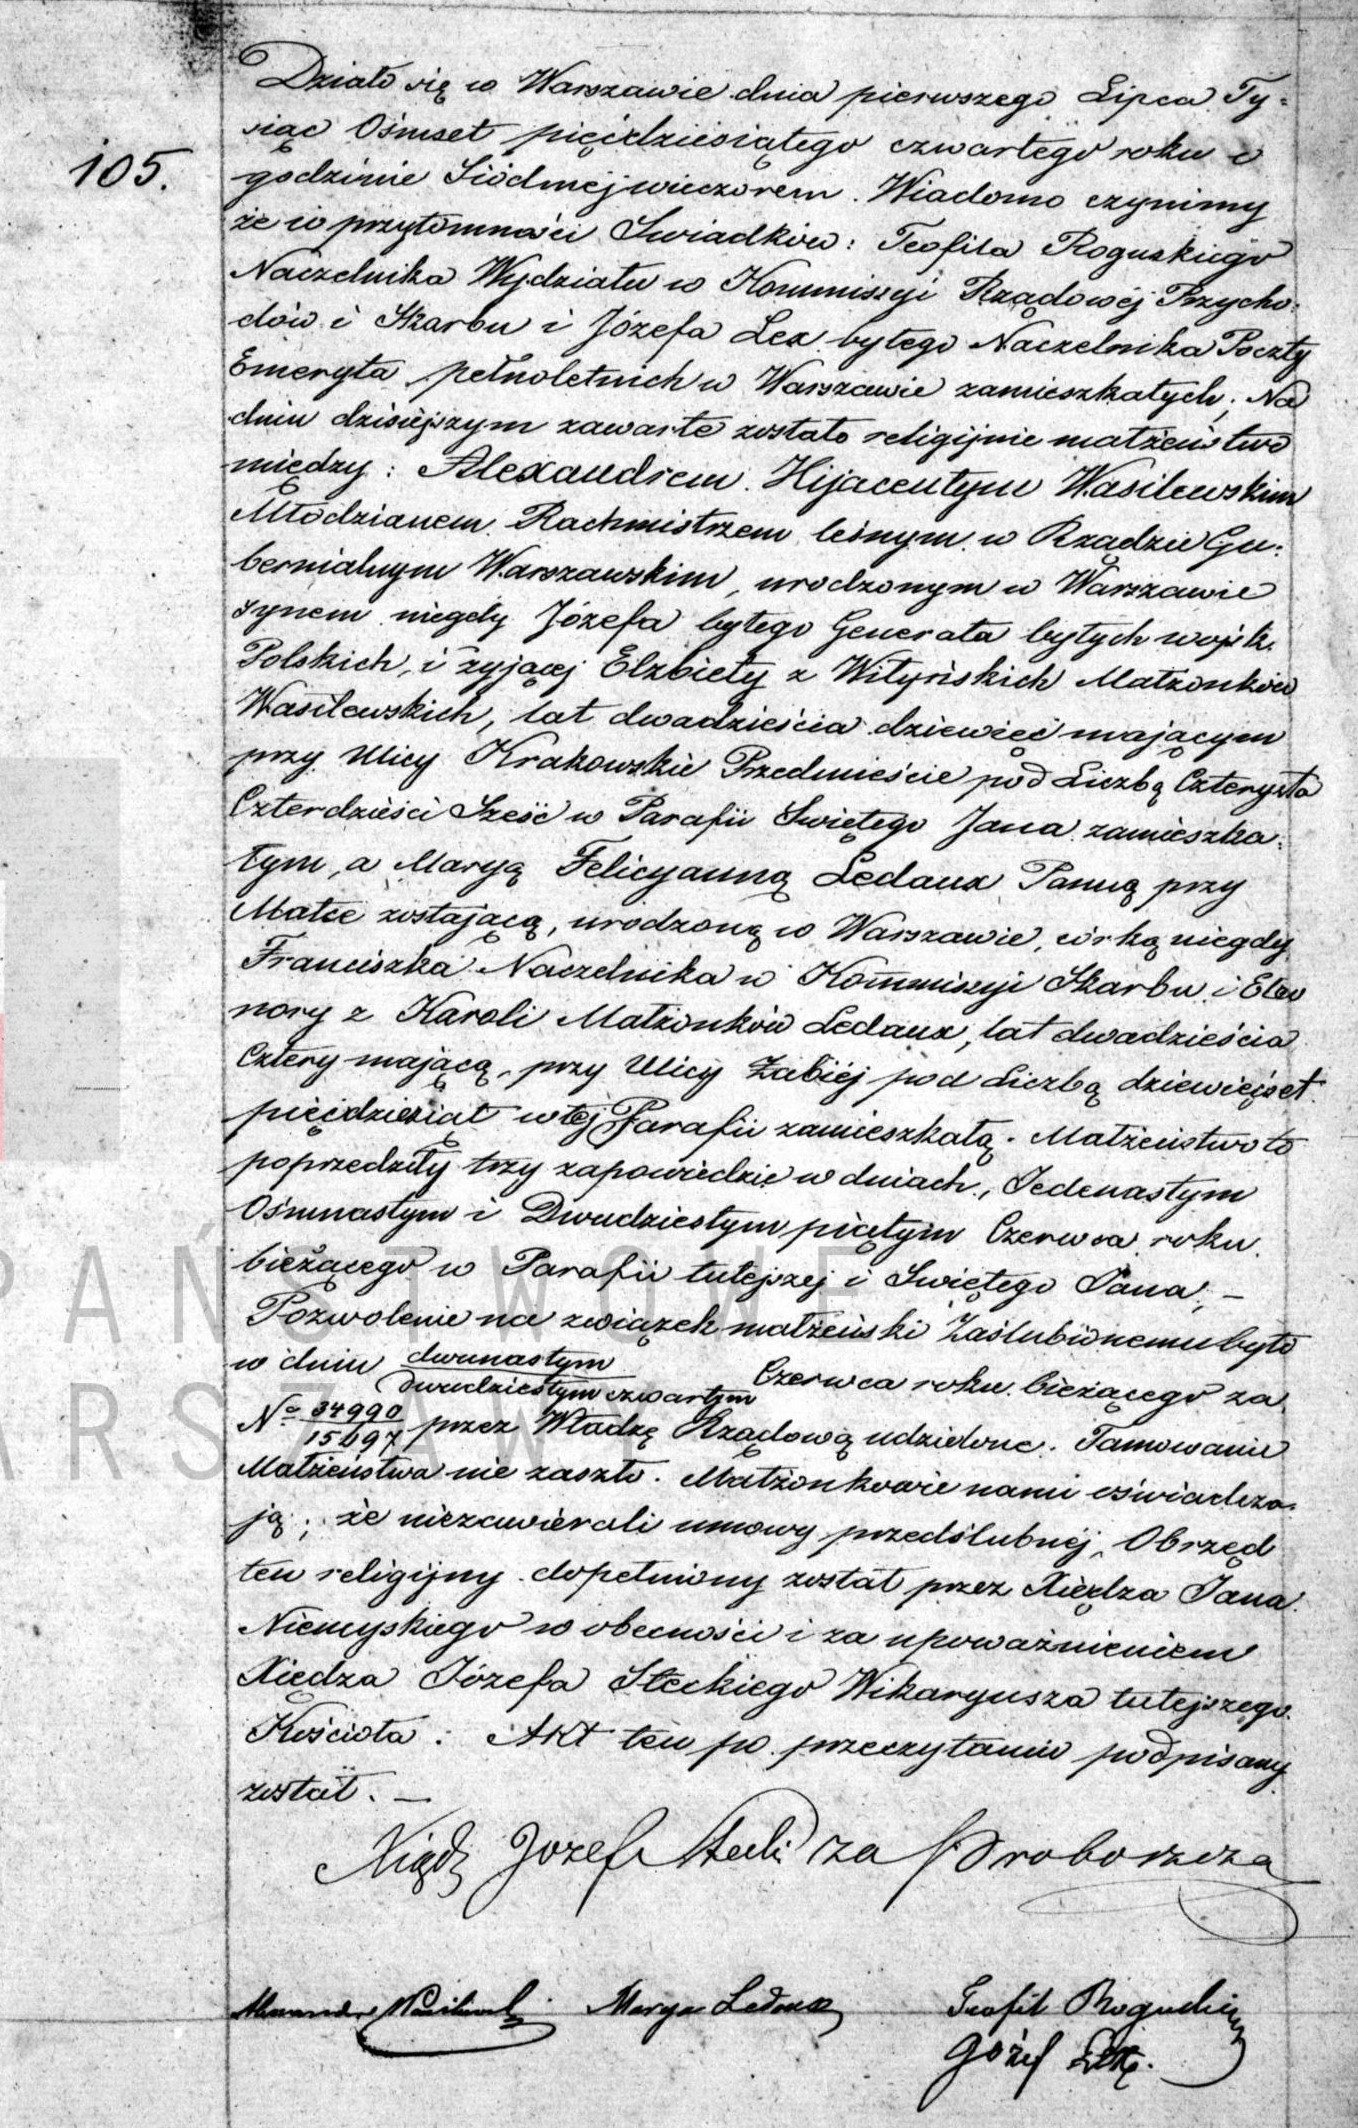 105.
Działo się w Warszawie dnia pierwszego Lipca Ty=
siąc Ośmset pięćdziesiątego czwartego roku o
godzinie Siódmej wieczorem. Wiadomo czynimy
że w przytomności Swiadków: Teofila Roguskiego
Naczelnika Wydziału w Kommissyi Rządowéj Przycho=
dów i Skarbu i Józefa Lex byłego Naczelnika Poczty
Emeryta pełnoletnich w Warszawie zamieszkałych; Na
dniu dzisiejszym zawarte zostało religijnie małżeństwo
między: Alexandrem Hijacentym Wasilewskim
Młodzianem Rachmistrzem leśnym w Rządzie Gu=
bernialnym Warszawskim, urodzonym w Warszawie
synem niegdy Józefa byłego Generała byłych wojsk
Polskich, i żyjącej Elżbiety z Wityńskich Małżonków
Wasilewskich, lat dwadzieścia dziewięć mającym
przy Ulicy Krakowskie Przedmieście pod Liczbą Czterysta
Czterdzieści Sześć w Parafii Swiętego Jana zamieszka=
łym, a Maryą Felicyanną Ledaux Panną przy
Matce zostającą, urodzoną w Warszawie, córką niegdy
Franciszka Naczelnika w Kommissyi Skarbu i Eleo
nory z Karoli Małżonków Ledaux, lat dwadzieścia
Cztery mającą, przy Ulicy Żabiéj pod Liczbą dziewięćset
pięćdziesiąt w tej Parafii zamieszkałą. Małżeństwo to
poprzedziły trzy zapowiedzie w dniach, Jedenastym
Ośmnastym i Dwudziestym piątym Czerwca roku
bieżącego w Parafii tutejszej i Swiętego Jana, —
Pozwolenie na związek małżeński Zaślubionemu było
w dniu dwunastym / dwudziestym czwartym Czerwca roku bieżącego za
No 34990 / 15097 przez Władzę Rządową udzielone. Tamowanie
Małżeństwa nie zaszło. Małżonkowie nami oświadcza=
ją; że niezawiérali umowy przedślubnéj, Obrzęd
ten religijny dopełniony został przez Xiędza Jana
Niemyskiego w obecności i za upoważnieniem
Xiędza Józefa Steckiego Wikaryusza tutejszego
Kościoła: Akt ten po przeczytaniu podpisany
został. —
Xiądz Jozef Stecki za Proboszcza
Alexander Wasilewski Marya Ledoux Teofil Roguski
Józef Lex.
PAŃSTWOWE
ARSZAWY